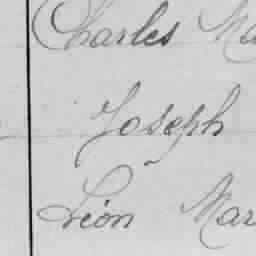 Charles Ma
Joseph
Léon Mar